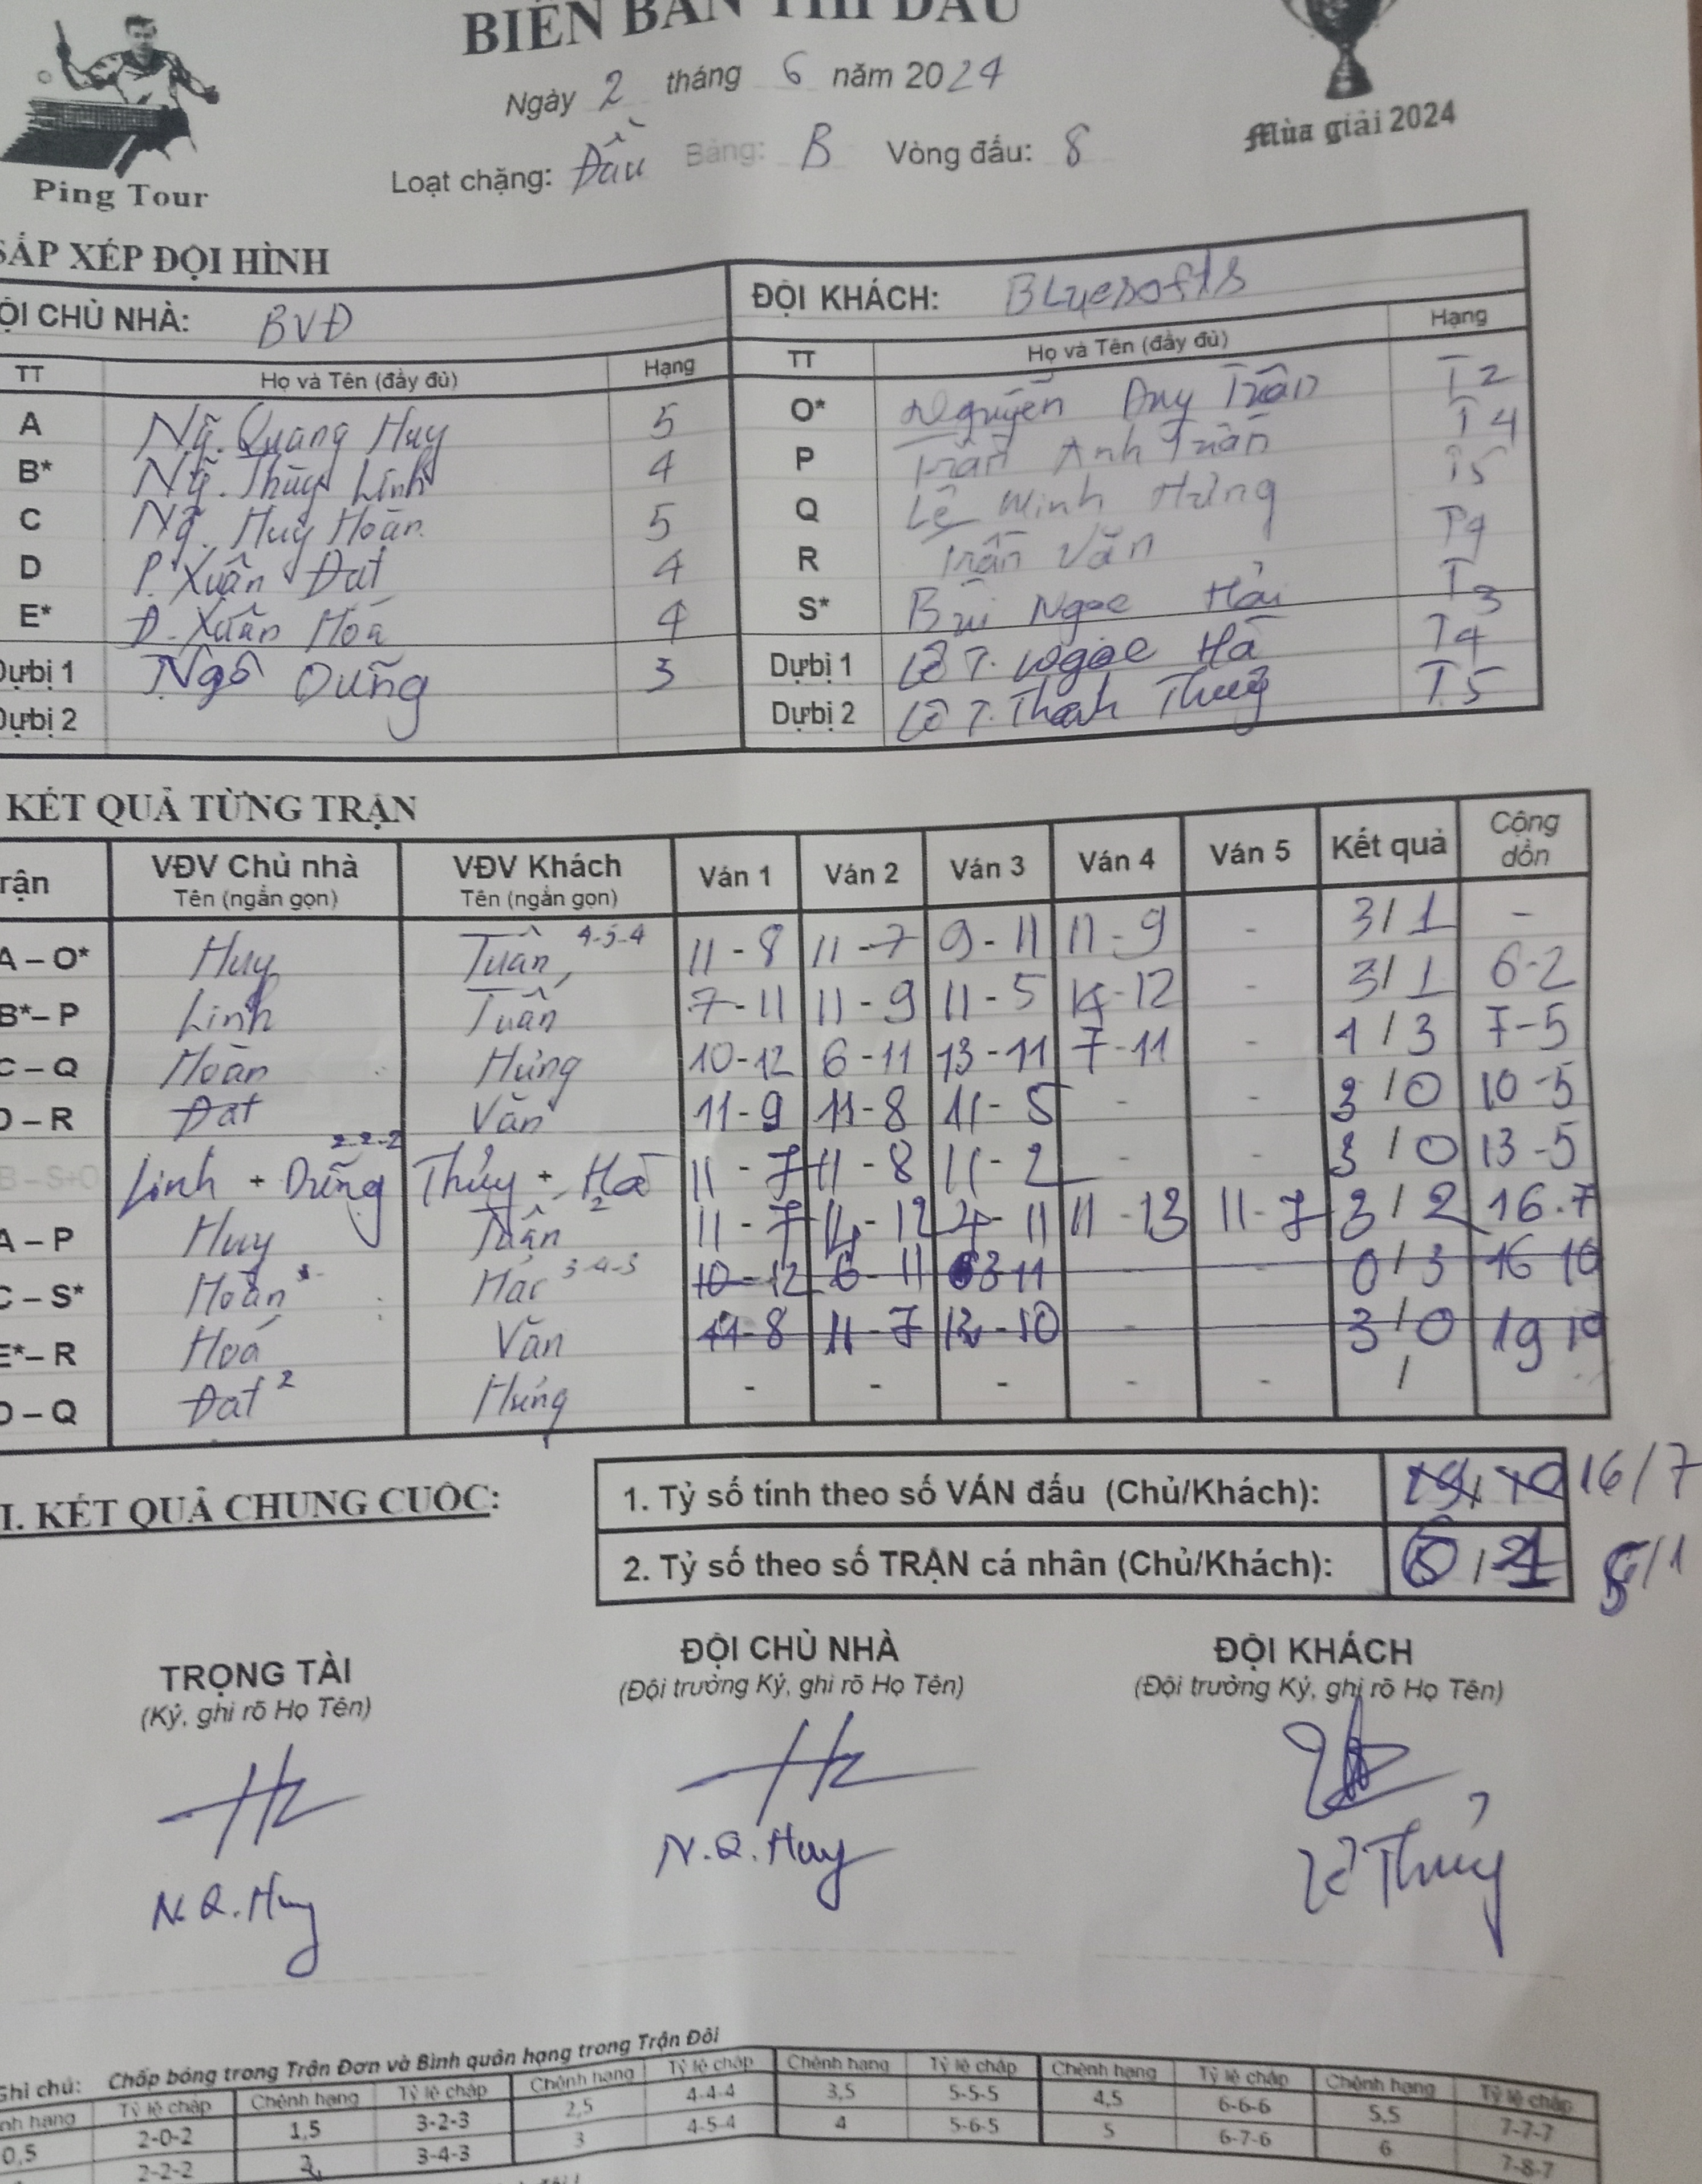 BIÊN BẢN THI ĐẤU
Ngày 2 tháng 6 năm 2024
Mùa giải 2024
Loạt chặng: Đầu Bảng: B Vòng đấu: 8
Ping Tour
SẮP XẾP ĐỘI HÌNH
ỘI CHỦ NHÀ: BVĐ ĐỘI KHÁCH: BLuesofts
TT Họ và Tên (đầy đủ) Hạng TT Họ và Tên (đầy đủ) Hạng
A Ng̃. Quang Huy 5 O* Nguyễn Duy Trân T2
B* Ng̃. Thùy Linh 4 P Trần Anh Tuấn T4
C Ng̃. Huy Hoàn 5 Q Lê Minh Hưng T5
D P. Xuân Đạt 4 R Trần Văn T4
E* Đ. Xuân Hoá 4 S* Bùi Ngọc Hải T3
Dự bị 1 Ngô Dũng 3 Dự bị 1 Lê T. Ngọc Hà T4
Dự bị 2 Dự bị 2 Lê T. Thanh Thuỷ T5
KẾT QUẢ TỪNG TRẬN
rận VĐV Chủ nhà Tên (ngắn gọn) VĐV Khách Tên (ngắn gọn) Ván 1 Ván 2 Ván 3 Ván 4 Ván 5 Kết quả Cộng dồn
A – O* Huy Tuân 4-5-4 11 - 8 11 - 7 9 - 11 11 - 9 - 3 / 1 -
B* – P Linh Tuấn 7 - 11 11 - 9 11 - 5 14 - 12 - 3 / 1 6-2
C – Q Hoàn Hưng 10 - 12 6 - 11 13 - 11 7 - 11 - 1 / 3 7-5
D – R Đạt Văn 11 - 9 11 - 8 11 - 5 - - 3 / 0 10-5
B – S+O Linh + Dũng 2-2-2 Thủy + Hà 11 - 7 11 - 8 11 - 2 - - 3 / 0 13-5
A – P Huy Tuấn 2 11 - 7 14 - 12 4 - 11 11 - 13 11 - 7 3 / 2 16-7
C – S* Hoàn Hải 3-4-3 10 - 12 6 - 11 - 11 - - 0 / 3 16 10
E* – R Hoá Văn 11 - 8 11 - 7 12 - 10 - - 3 / 0 19 10
D – Q Đạt 2 Hưng - - - - - /
I. KẾT QUẢ CHUNG CUỘC:
1. Tỷ số tính theo số VÁN đấu (Chủ/Khách): 19/10 16/7
2. Tỷ số theo số TRẬN cá nhân (Chủ/Khách): 5/1
TRỌNG TÀI ĐỘI CHỦ NHÀ ĐỘI KHÁCH
(Ký, ghi rõ Họ Tên) (Đội trưởng Ký, ghi rõ Họ Tên) (Đội trưởng Ký, ghi rõ Họ Tên)
N.Q.Huy N.Q.Huy Lê Thủy
Ghi chú: Chấp bóng trong Trận Đơn và Bình quân hạng trong Trận Đôi
nh hạng Tỷ lệ chấp Chênh hạng Tỷ lệ chấp Chênh hạng Tỷ lệ chấp Chênh hạng Tỷ lệ chấp Chênh hạng Tỷ lệ chấp Chênh hạng Tỷ lệ chấp
0,5 2-0-2 1,5 3-2-3 2,5 4-4-4 3,5 5-5-5 4,5 6-6-6 5,5 7-7-7
2-2-2 2 3-4-3 3 4-5-4 4 5-6-5 5 6-7-6 6 7-8-7